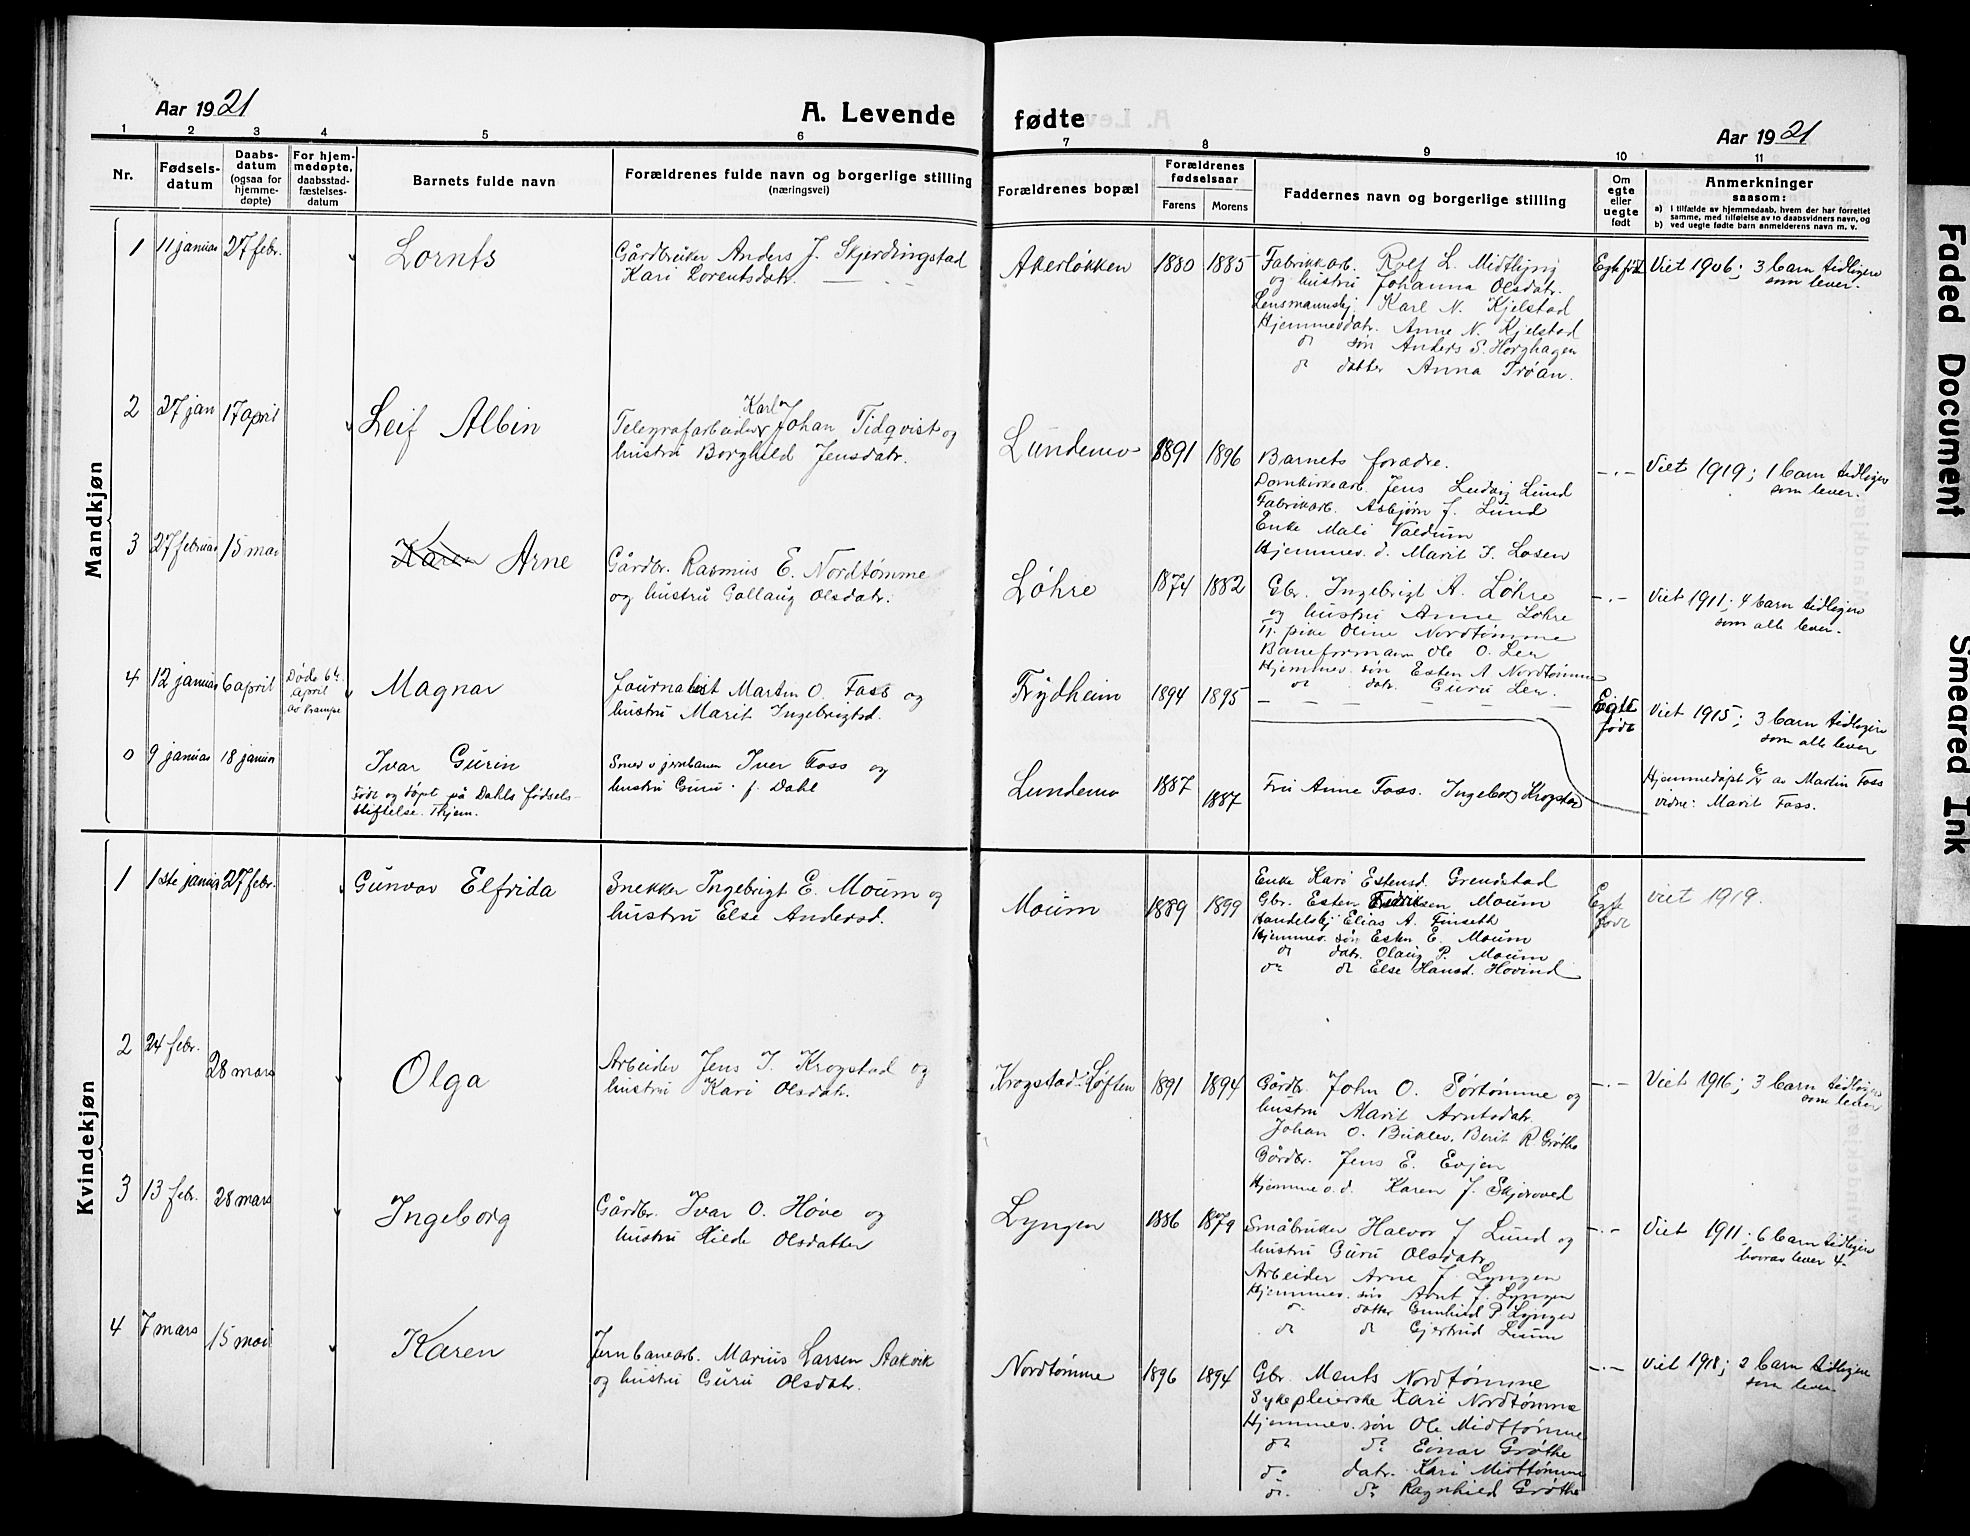 Aar 1921
A. Levende fødte
Aar 1921
1 2 3 4 5 6 7 8 9 10 11
Nr.
Fødselsdatum
Daabsdatum (ogsaa for hjemmedøpte)
For hjemmedøpte, daabsstadfæstelsesdatum
Barnets fulde navn
Forældrenes fulde navn og borgerlige stilling
(næringsvei)
Forældrenes bopæl
Forældrenes fødselsaar
Farens Morens
Faddernes navn og borgerlige stilling
Om egte eller uegte født
Anmerkninger
saasom:
a) i tilfælde av hjemmedaab, hvem der har forrettet
samme, med tilføielse av to daabsvidners navn, og
b) ved uegte fødte barn anmelderens navn m. v.
Mandkjøn
1 11 januar 27 febr. Lornts
Gårdbruker Anders J. Skjerdingstad
Kari Lorentsdatr.
Akerløkken 1880 1885
Fabrikkarb. Rolf L. Midtlyng
og hustru Johanna Olsdatr.
Lensmannsbj. Karl N. Kjelstad
Hjemmevdatr. Anne N. Kjelstad
do søn Anders S. Horghagen
do datter Anna Trøan.
Egte født
Viet 1906; 3 barn tidligere
som lever.
2 27 jan 17 april Leif Albin
Karl
Telegrafarbeider Johan Tidqvist og
hustru Borghild Jensdatr.
Lundemo 1891 1896
Barnets forældre.
Jens Ludvig Lund
Fabrikarb. Asbjørn J. Lund
Enke Mali Valdum
Hjemmev. d. Marit I. Losen
-.-
Viet 1919; 1 barn tidligere
som lever.
3 27 februar 15 mai Karen Arne
Gårdbr. Rasmus E. Nordtømme
og hustru Gollaug Olsdatr.
Løhre 1874 1882
Gbr. Ingebrigt A. Løhre
og hustru Anne Løhre
Tj. pike Oline Nordtømme
Baneformann Ole O. Ler
Hjemmev. søn Esten A. Nordtømme
do datr. Guru Ler.
-.-
Viet 1911; 4 barn tidligere
som alle lever.
4 12 januar 6 april
Døde 6te
april
av krampe
Magnar
Journalist Martin O. Foss og
hustru Marit Ingebrigtsd.
Frydheim 1894 1895
- - - - - - -
Egte født
Viet 1915; 3 barn tidligere
som alle lever
0 9 januar 18 januar Ivar Gurin
Født og døpt på Dahls fødsels-
stiftelse. Thjem.
Smed v jernbanen Iver Foss og
hustru Guru f. Dahl
Lundemo 1887 1887
Fru Anne Foss. Ingeborg Krogstad
Hjemmedøpt av Martin Foss
vidne: Marit Foss.
Kvindekjøn
1 1ste januar 27 febr. Gunvor Elfrida
Snekker Ingebrigt E. Moum og
hustru Else Andersd.
Moum 1889 1899
Enke Kari Estensd. Grendstad
Gbr. Esten Fredriksen Moum
Handelsbj Elias A. Finseth
Hjemmev. søn Esten E. Moum
do datr. Olaug P. Moum
do do Else Hansd. Hovind
Egte født
viet 1919.
2 24 febr. 28 mars Olga
Arbeider Jens I. Krogstad og
hustru Kari Olsdatr.
Krogstad-Løften 1891 1894
Gårdb. John O. Sørtømme og
hustru Marit Arntsdatr.
Johan O. Buklev, Berit R Grøthe
Gårdbr. Jens E. Evjen
Hjemmev. d. Karen J. Skjerøved
-.-
Viet 1916; 3 barn tidligere
som lever
3 13 febr. 28 mars Ingeborg
Gårdbr. Ivar O. Hove og
hustru Hilde Olsdatter
Lyngen 1886 1879
Småbruker Halvor J Lund og
hustru Guru Olsdatr.
Arbeider Arne J. Lyngen
Hjemmev. søn Arnt J. Lyngen
do datter Gunhild P Lyngen
do do Gjertrud Lium
-.-
Viet 1911; 6 barn tidligere
hvorav lever 4.
4 7 mars 15 mai Karen
Jernbanearb. Marius Larsen Aakvik
og hustru Guru Olsdatr.
Nordtømme 1896 1894
Gbr. Ments Nordtømme
Sykepleierske Kari Nordtømme
Hjemmev. søn Ole Midttømme
do do Einar Grøthe
do datr. Kari Midttømme
do do Ragnhild Grøthe
-.-
Viet 1918; 2 barn tidligere
som lever.
Faded Document
Smeared Ink